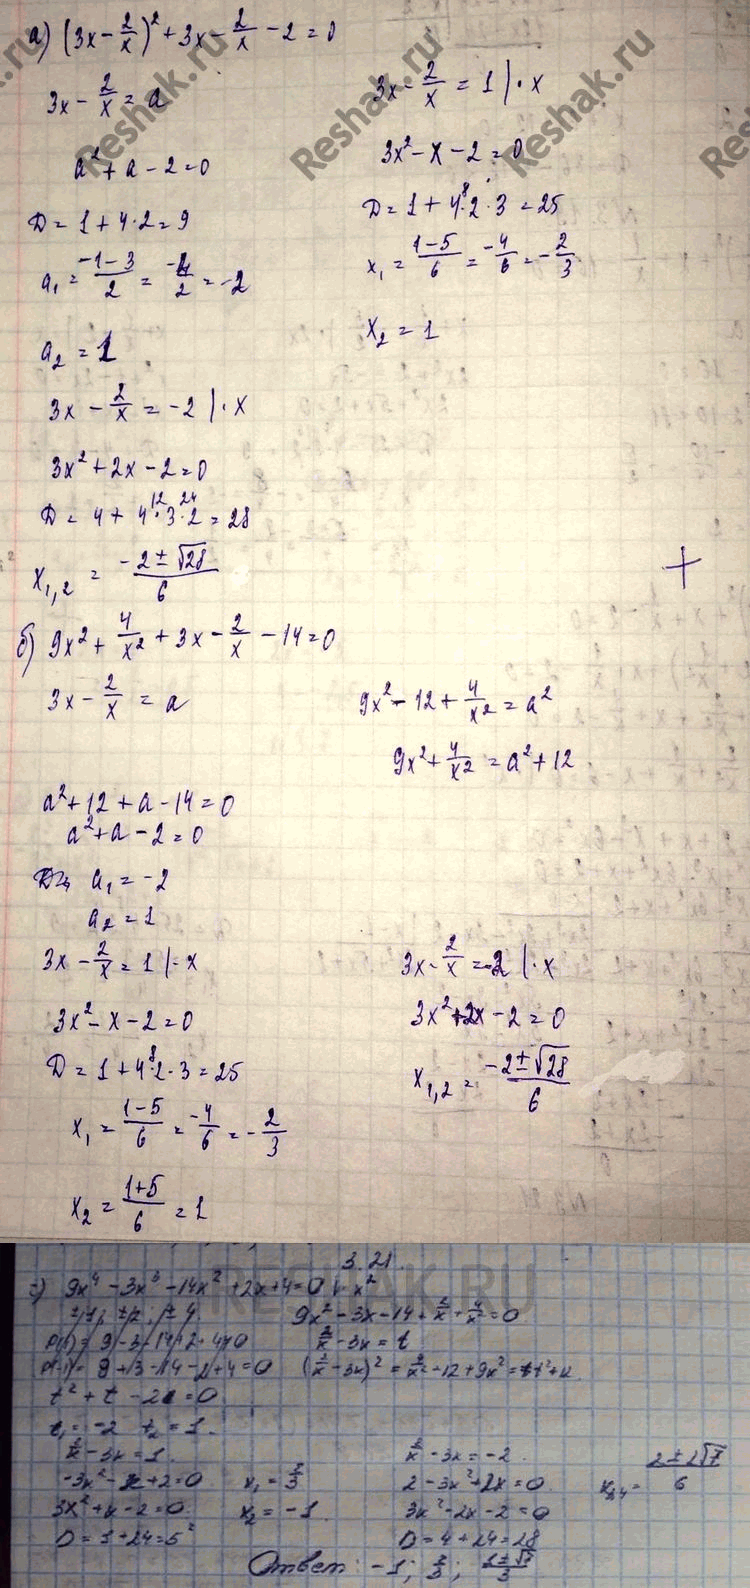 а) (3x - 2/x)² + 3x - 2/x - 2 = 0
3x - 2/x = a
a² + a - 2 = 0
D = 1 + 4·2 = 9
a₁ = (-1-3)/2 = -4/2 = -2
a₂ = 1
3x - 2/x = -2 |·x
3x² + 2x - 2 = 0
D = 4 + 4·3·2 = 28
x₁,₂ = (-2 ± √28)/6
3x - 2/x = 1 |·x
3x² - x - 2 = 0
D = 1 + 4·2·3 = 25
x₁ = (1-5)/6 = -4/6 = -2/3
x₂ = 1
б) 9x² + 4/x² + 3x - 2/x - 14 = 0
3x - 2/x = a
9x² - 12 + 4/x² = a²
9x² + 4/x² = a² + 12
a² + 12 + a - 14 = 0
a² + a - 2 = 0
a₁ = -2
a₂ = 1
3x - 2/x = 1 |·x
3x² - x - 2 = 0
D = 1 + 4·2·3 = 25
x₁ = (1-5)/6 = -4/6 = -2/3
x₂ = (1+5)/6 = 1
3x - 2/x = -2 |·x
3x² + 2x - 2 = 0
x₁,₂ = (-2 ± √28)/6
3.21.
9x⁴ - 3x³ - 14x² + 2x + 4 = 0 | : x²
±1; ±2; ±4
9x² - 3x - 14 + 2/x + 4/x² = 0
2/x - 3x = t
t² + t - 2 = 0
t₁ = -2 t₂ = 1.
2/x - 3x = 1.
-3x² - x + 2 = 0
3x² + x - 2 = 0
D = 1 + 24 = 5²
x₁ = 2/3
x₂ = -1
2/x - 3x = -2.
2 - 3x² + 2x = 0
3x² - 2x - 2 = 0
D = 4 + 24 = 28
(2 ± 2√7)/6
Ответ: -1; 2/3; (1 ± √7)/3
Reshak.ru
Reshak.ru
Reshak.ru
RESHAK.RU